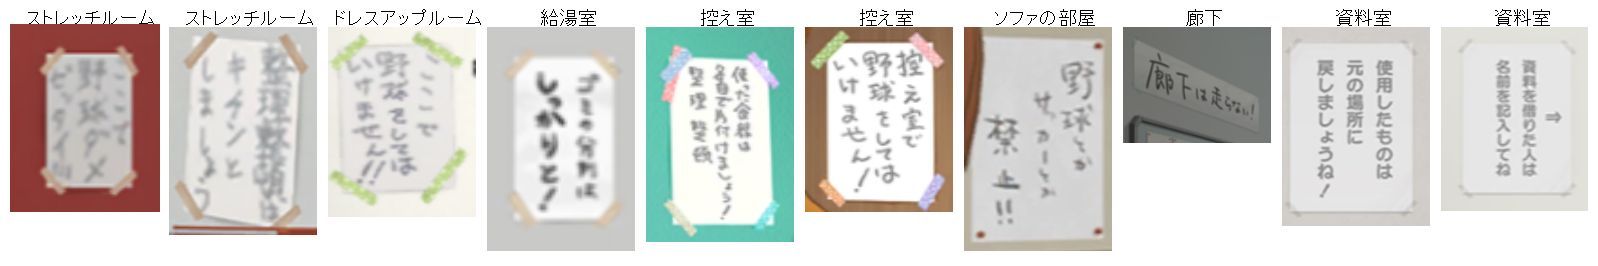 ストレッチルーム
ここで
野球ダメ
ゼッタイ!!
ストレッチルーム
整理整頓は
キチンと
しましょう
ドレスアップルーム
ここで
野球をしては
いけません!!
給湯室
ゴミの分別は
しっかりと!
控え室
使った食器は
各自で片付けましょう!
整理整頓
控え室
控え室で
野球をしては
いけません!
ソファの部屋
野球とか
サッカーとか
禁止!!
廊下
廊下は走らない!
資料室
使用したものは
元の場所に
戻しましょうね!
資料室
⇒
資料を借りた人は
名前を記入してね